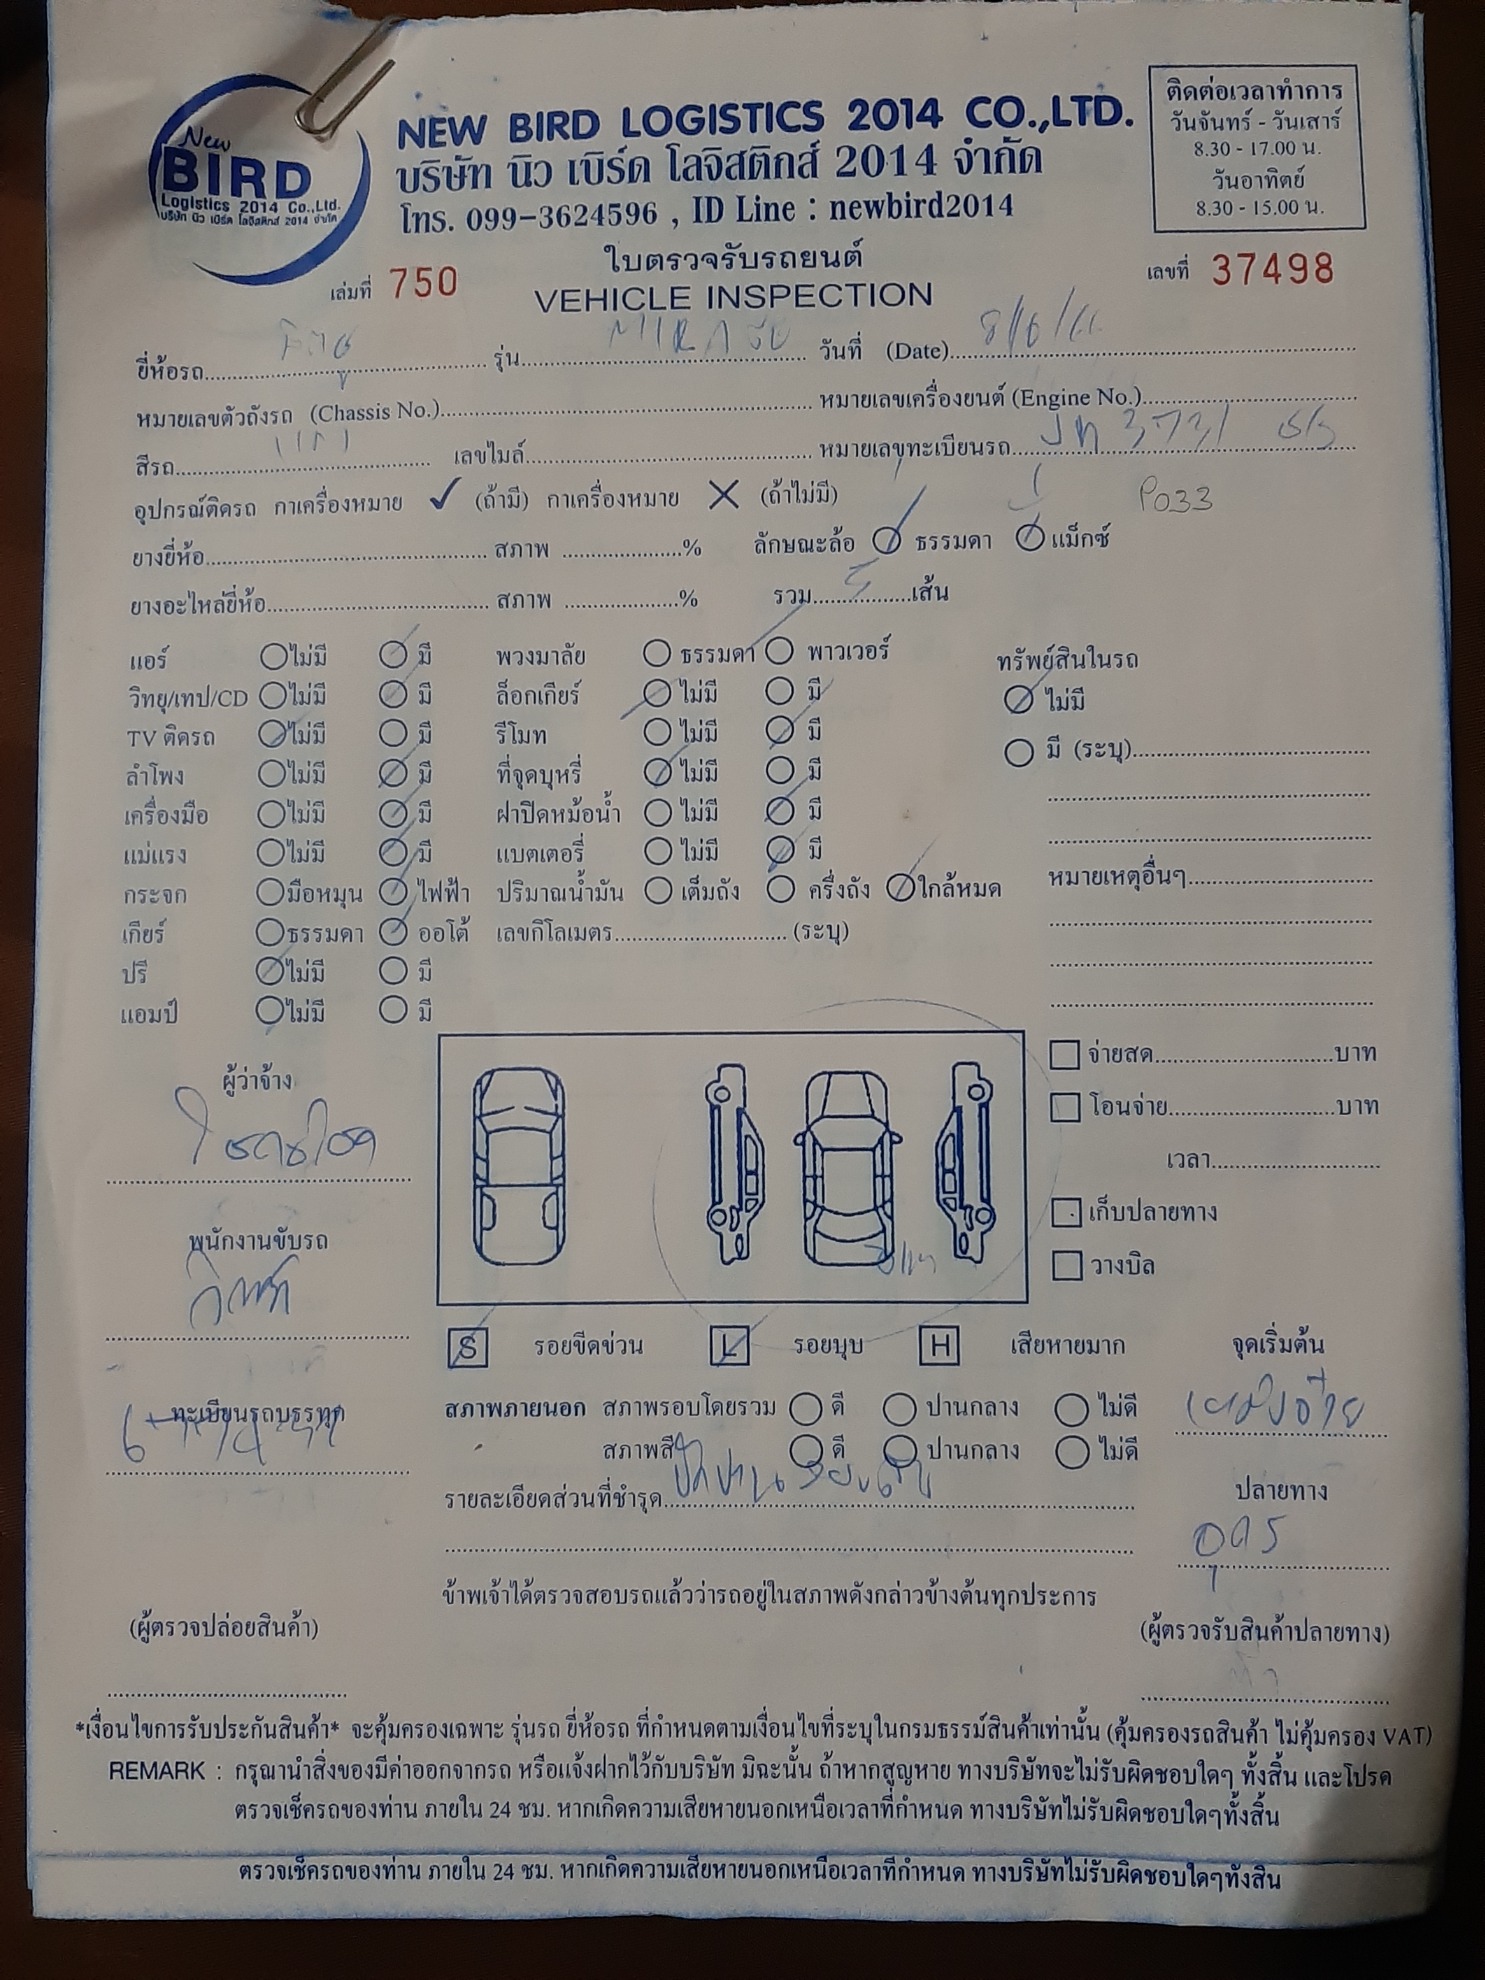 New
BIRD
Logistics 2014 Co.,Ltd.
บริษัท นิว เบิร์ด โลจิสติกส์ 2014 จำกัด
NEW BIRD LOGISTICS 2014 CO.,LTD.
บริษัท นิว เบิร์ด โลจิสติกส์ 2014 จำกัด
โทร. 099-3624596 , ID Line : newbird2014
ติดต่อเวลาทำการ
วันจันทร์ - วันเสาร์
8.30 - 17.00 น.
วันอาทิตย์
8.30 - 15.00 น.
ใบตรวจรับรถยนต์
เล่มที่ 750
VEHICLE INSPECTION
เลขที่ 37498
ยี่ห้อรถ รุ่น MIRA วันที่ (Date) 8/6/66
หมายเลขตัวถังรถ (Chassis No.) หมายเลขเครื่องยนต์ (Engine No.)
สีรถ เทา เลขไมล์ หมายเลขทะเบียนรถ 3731
อุปกรณ์ติดรถ กาเครื่องหมาย ✓ (ถ้ามี) กาเครื่องหมาย ✕ (ถ้าไม่มี) P033
ยางยี่ห้อ สภาพ % ลักษณะล้อ ธรรมดา แม็กซ์
ยางอะไหล่ยี่ห้อ สภาพ % รวม 5 เส้น
แอร์ ไม่มี มี พวงมาลัย ธรรมดา พาวเวอร์ ทรัพย์สินในรถ
วิทยุ/เทป/CD ไม่มี มี ล็อกเกียร์ ไม่มี มี ไม่มี
TV ติดรถ ไม่มี มี รีโมท ไม่มี มี มี (ระบุ)
ลำโพง ไม่มี มี ที่จุดบุหรี่ ไม่มี มี
เครื่องมือ ไม่มี มี ฝาปิดหม้อน้ำ ไม่มี มี
แม่แรง ไม่มี มี แบตเตอรี่ ไม่มี มี
กระจก มือหมุน ไฟฟ้า ปริมาณน้ำมัน เต็มถัง ครึ่งถัง ใกล้หมด หมายเหตุอื่นๆ
เกียร์ ธรรมดา ออโต้ เลขกิโลเมตร (ระบุ)
ปรี ไม่มี มี
แอมป์ ไม่มี มี
ผู้ว่าจ้าง
จ่ายสด บาท
โอนจ่าย บาท
เวลา
เก็บปลายทาง
พนักงานขับรถ
วางบิล
S รอยขีดข่วน L รอยบุบ H เสียหายมาก จุดเริ่มต้น
ทะเบียนรถบรรทุก
สภาพภายนอก สภาพรอบโดยรวม ดี ปานกลาง ไม่ดี
สภาพสี ดี ปานกลาง ไม่ดี
รายละเอียดส่วนที่ชำรุด
ปลายทาง
อุดร
ข้าพเจ้าได้ตรวจสอบรถแล้วว่ารถอยู่ในสภาพดังกล่าวข้างต้นทุกประการ
(ผู้ตรวจปล่อยสินค้า) (ผู้ตรวจรับสินค้าปลายทาง)
*เงื่อนไขการรับประกันสินค้า* จะคุ้มครองเฉพาะ รุ่นรถ ยี่ห้อรถ ที่กำหนดตามเงื่อนไขที่ระบุในกรมธรรม์สินค้าเท่านั้น (คุ้มครองรถสินค้า ไม่คุ้มครอง VAT)
REMARK : กรุณานำสิ่งของมีค่าออกจากรถ หรือแจ้งฝากไว้กับบริษัท มิฉะนั้น ถ้าหากสูญหาย ทางบริษัทจะไม่รับผิดชอบใดๆ ทั้งสิ้น และโปรด
ตรวจเช็ครถของท่าน ภายใน 24 ชม. หากเกิดความเสียหายนอกเหนือเวลาที่กำหนด ทางบริษัทไม่รับผิดชอบใดๆทั้งสิ้น
ตรวจเช็ครถของท่าน ภายใน 24 ชม. หากเกิดความเสียหายนอกเหนือเวลาที่กำหนด ทางบริษัทไม่รับผิดชอบใดๆทั้งสิ้น